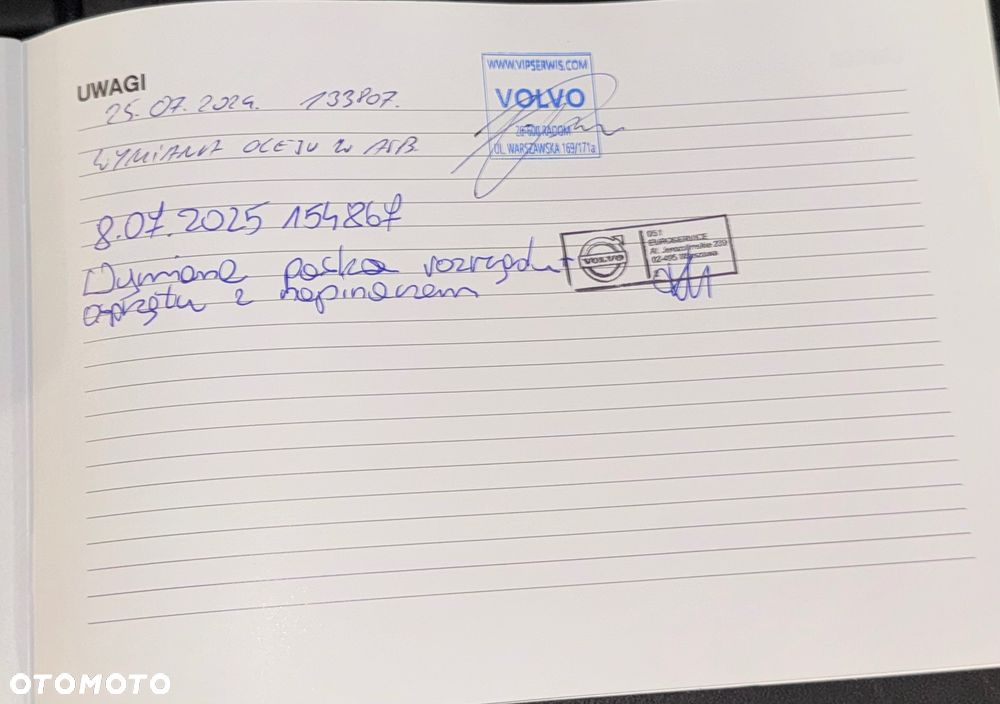 UWAGI
25.07.2024. 133807.
WYMIANA OLEJU W ASB.
WWW.VIPSERWIS.COM
VOLVO
26-600 RADOM
UL. WARSZAWSKA 169/171a
8.07.2025 154867
Wymiana paska rozrządu +
osprzętu z napinaczem
VOLVO
051
EUROSERVICE
Al. Jerozolimskie 239
02-495 Warszawa
OTOMOTO